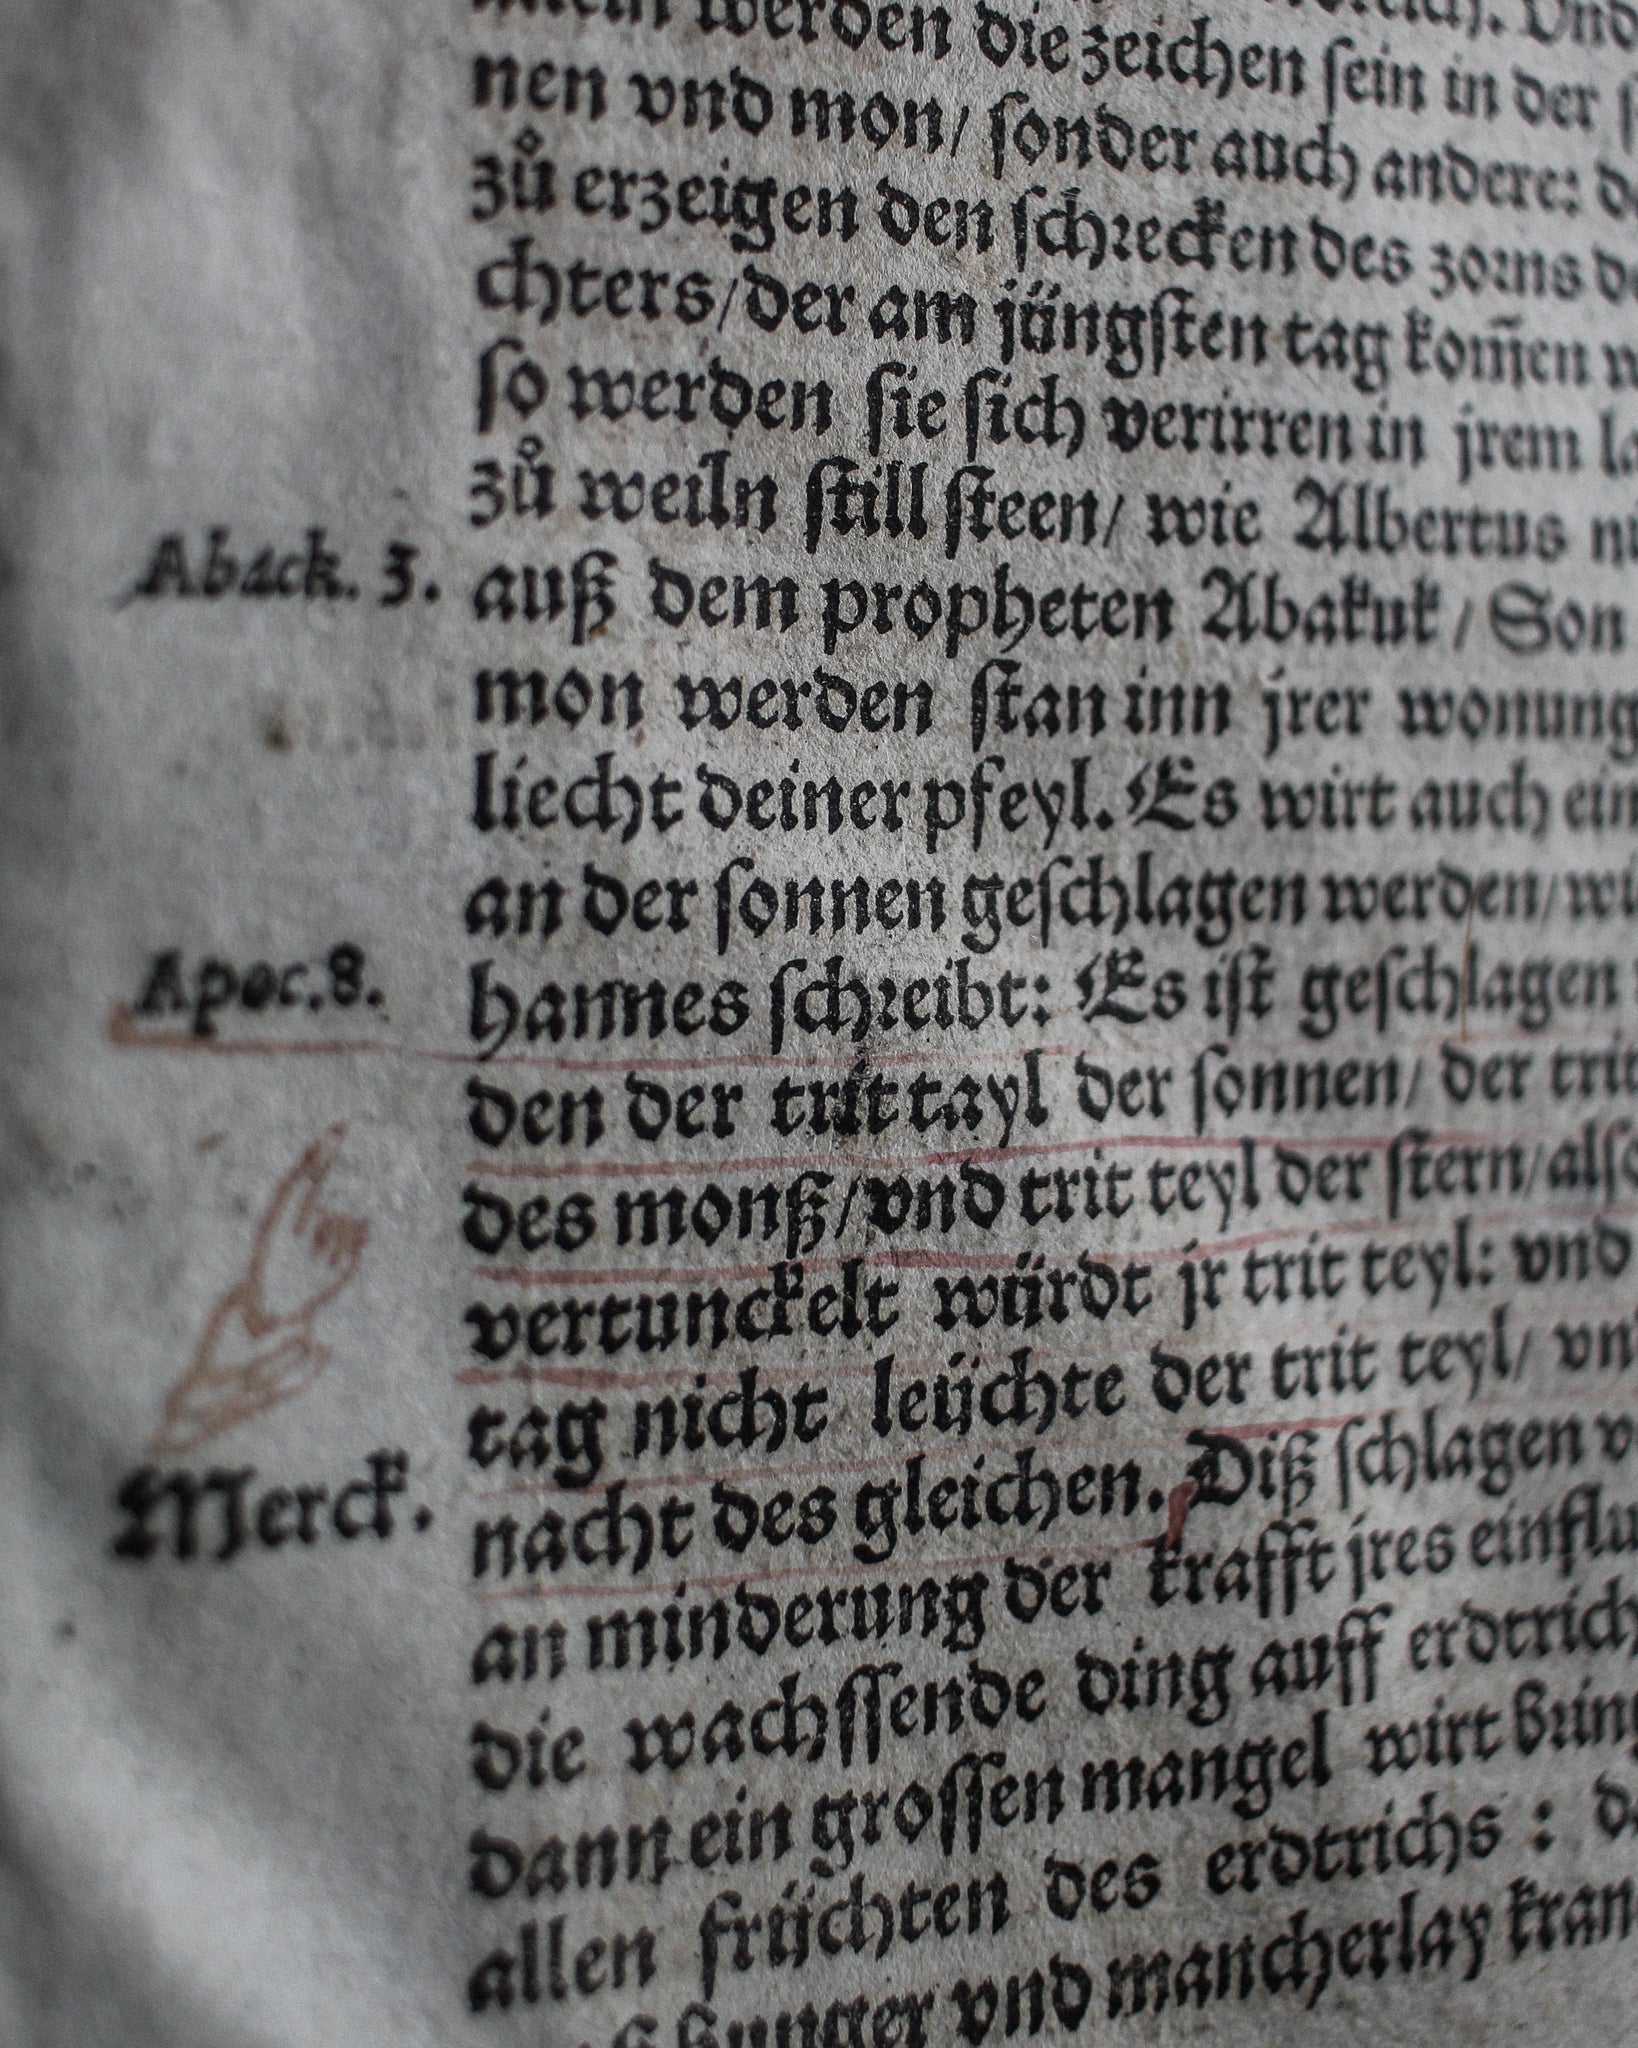 werden die zeichen sein in der
nen vnd mon/ sonder auch andere:
zů erzeigen den schrecken des zorns
chters/der am jüngsten tag kom̄en
so werden sie sich verirren in jrem
zů weiln still steen/ wie Albertus
Aback. 3. auß dem propheten Abakuk/Son
mon werden stan inn jrer wonung
liecht deiner pfeyl. Es wirt auch ein
an der sonnen geschlagen werden/
Apoc.8. hannes schreibt: Es ist geschlagen
den der trit tayl der sonnen/ der trit
des monß/vnd trit teyl der stern/also
vertunckelt würdt jr trit teyl: vnd
tag nicht leüchte der trit teyl/
Merck. nacht des gleichen. Diß schlagen
an minderung der krafft jres einflu
die wachssende ding auff erdtrich
dann ein grossen mangel wirt bring
allen früchten des erdtrichs:
hunger vnd mancherlay kran